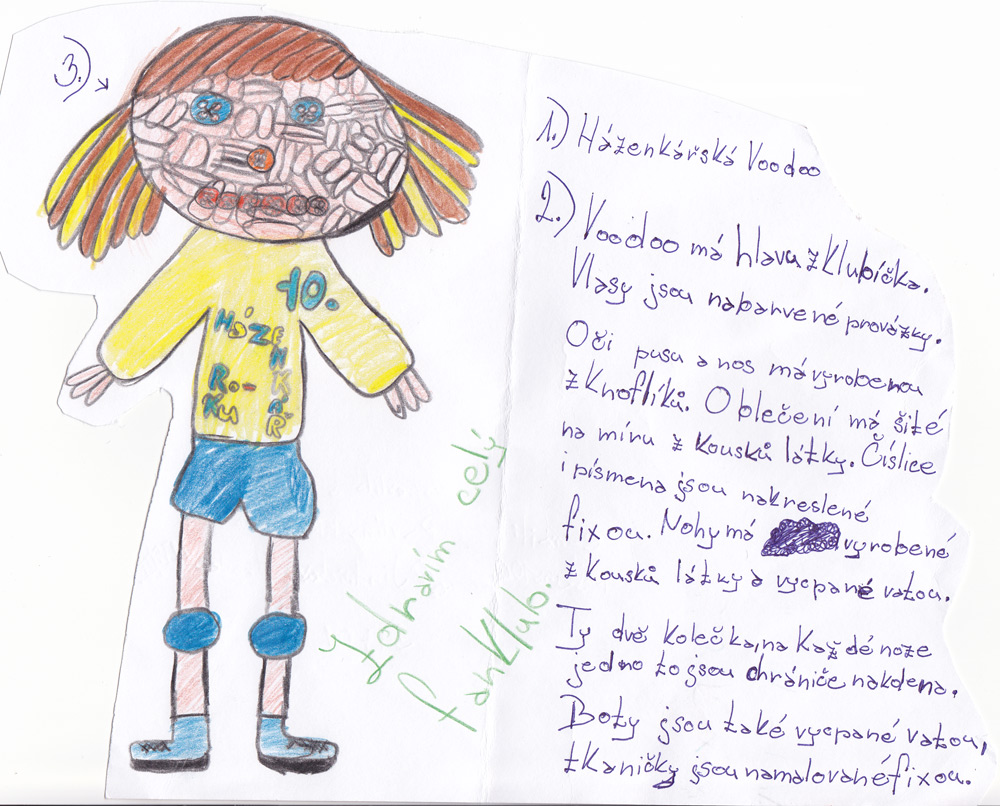 3.)
10.
HÁZENKÁŘ
RO-
KU
Zdravím celý
fanklub.
1.) Házenkářská Voodoo
2.) Voodoo má hlavu z klubíčka.
Vlasy jsou nabarvené provázky.
Oči pusu a nos má vyrobenou
z knoflíků. Oblečení má šité
na míru z kousků látky. Číslice
i písmena jsou nakreslené
fixou. Nohy má vyrobené
z kousků látky a vycpané vatou.
Ty dvě kolečka, na každé noze
jedno to jsou chrániče na kolena.
Boty jsou také vycpané vatou,
tkaničky jsou namalované fixou.